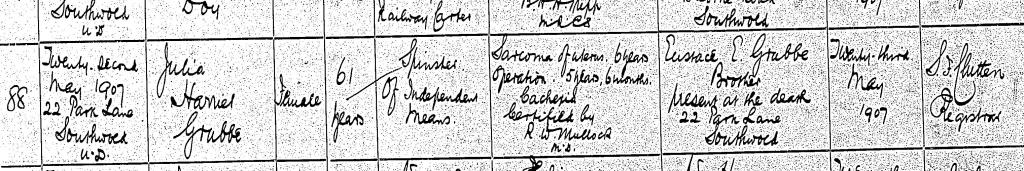 Southwold
U.D.
Boy
Railway Carter
M.R.C.S.
Southwold
1907
88
Twenty-second
May 1907
22 Park Lane
Southwold
U.D.
Julia
Harriet
Grubbe
Female
61
years
Spinster
Of Independent
Means.
Sarcoma of uterus. 6 years
Operation. 5 years, 6 months.
Cachexia
Certified by
R W Mullock
M.D.
Eustace E. Grubbe
Brother
present at the death
22 Park Lane
Southwold
Twenty-third
May
1907
Registrar